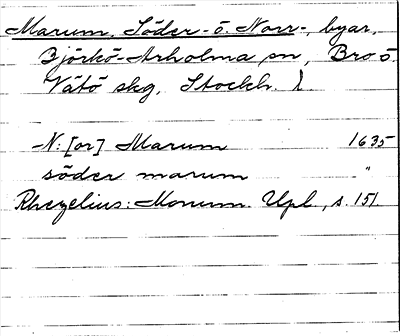 Marum, Söder- o. Norr-, byar,
Björkö-Arholma sn, Bro o.
Vätö skg, Stockh. l.
N:[or] Marum 1635
söder marum "
Rhezelius: Monum. Upl., s. 151